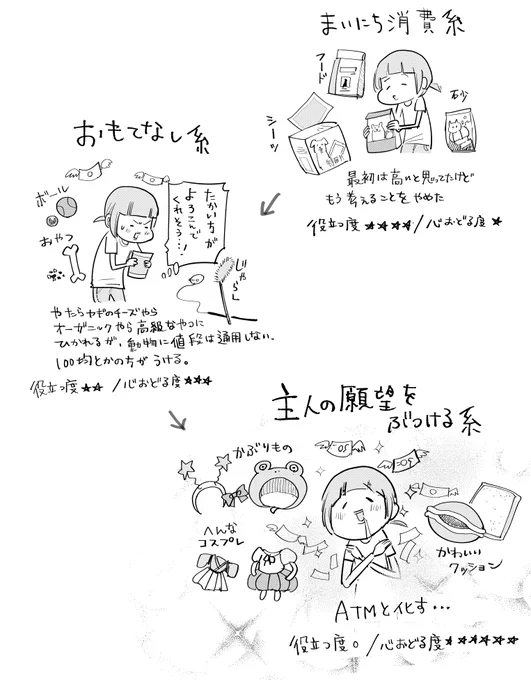 まいにち消費系
フード
砂
シーツ
最初は高いと思ってたけど
もう考えることをやめた
役立つ度★★★★/心おどる度★
おもてなし系
ボール
おやつ
たかい方が
よろこんで
くれそう…!
じゃらし
やたらヤギのチーズやら
オーガニックやら高級なやつに
ひかれるが、動物に値段は通用しない。
100均とかの方がうける。
役立つ度★★/心おどる度★★★
主人の願望を
ぶつける系
かぶりもの
へんな
コスプレ
かわいい
クッション
ATMと化す…
役立つ度0/心おどる度★★★★★★